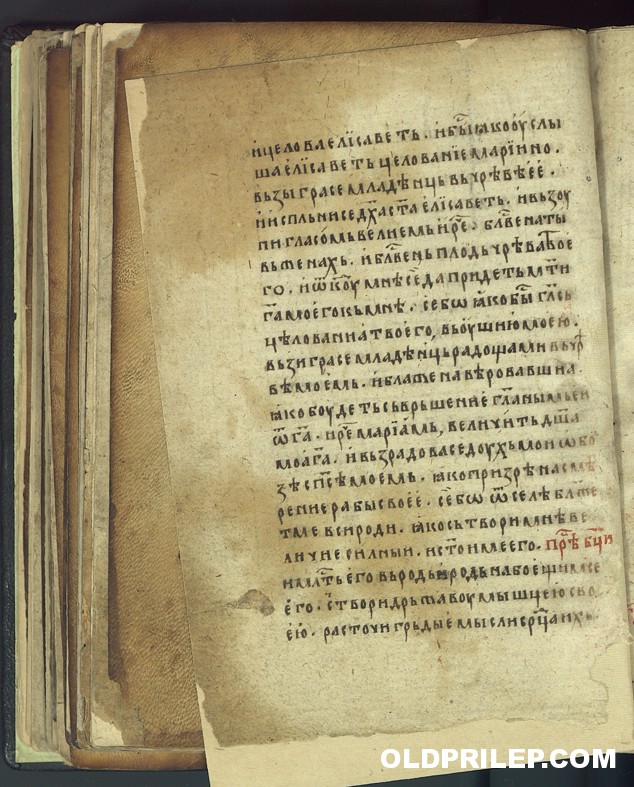 ицеловаелїсаветь. ибы꙯ꙗкоѹслы
шаелїсаветьцелованїемарїино.
възыграсемладѣньцьвьчрѣвѣее.
ииспльнисед꙯хаст꙯аелїсаветь. ивьзоу
пигласомьвелиемьир꙯е. бл꙯венаты
вьженахь. ибл꙯веньплодьчрѣва
го. иѿкоу꙯мнѣсе꙯дапридетьмт꙯и
г꙯амоегокьмнѣ. себѡꙗкобы꙯гл꙯сь
цѣлованиатвоего, вьоушиюмоею.
вьзиграсемладѣньцьрадощамивьчр꙯
вѣмоемь. иблаженавѣровавшиа.
ꙗкобоудетьсьврьшениегл꙯анымьеи
ѿг꙯а. ир꙯емарїамь, величитьдш꙯а
моаг꙯а. ивьзрадоваседоухьмоиѡбо꙯
зѣсп꙯сѣмоемь. ꙗкопризрѣнасмѣ
рениерабысвоее. се꙯бѡѿселѣбл꙯же
тмевсироди. ꙗкосьтворимнѣве
личиесилныи. ист꙯оимеего. прѣ꙯бц꙯и
имл꙯тьеговьродьиродьнабоещимсе
его. створидрьжавоумышцеюсво
ею. расточигрьдыемыслисрц꙯аихь
OLDPRILEP.COM